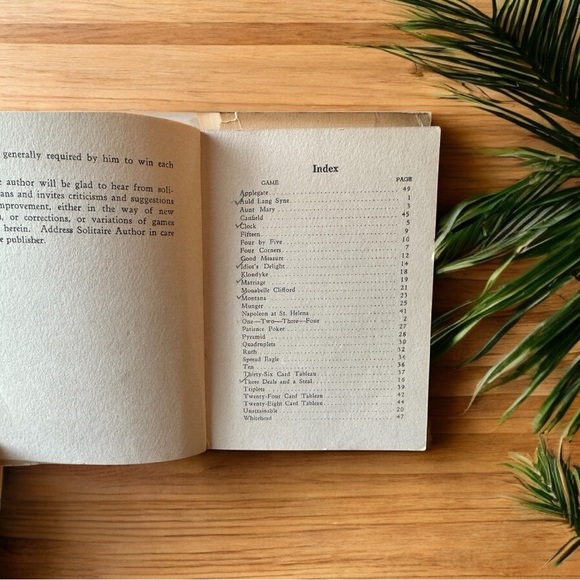 generally required by him to win each
author will be glad to hear from soli-
ans and invites criticisms and suggestions
mprovement, either in the way of new
, or corrections, or variations of games
herein. Address Solitaire Author in care
e publisher.
Index
GAME PAGE
Applegate 49
Auld Lang Syne 1
Aunt Mary 3
Canfield 45
Clock 5
Fifteen 9
Four by Five 10
Four Corners 7
Good Measure 12
Idiot's Delight 14
Klondyke 18
Marriage 19
Clifford 21
Montana 23
Munger 25
Napoleon at St. Helena 41
One—Two—Three—Four 2
Patience Poker 27
Pyramid 28
Quadruplets 30
Ruth 32
Spread Eagle 34
Ten 36
Thirty-Six Card Tableau 37
Three Deals and a Steal
Triplets 39
Twenty-Four Card Tableau 42
Twenty-Eight Card Tableau 44
Unattainable 20
Whitehead 47